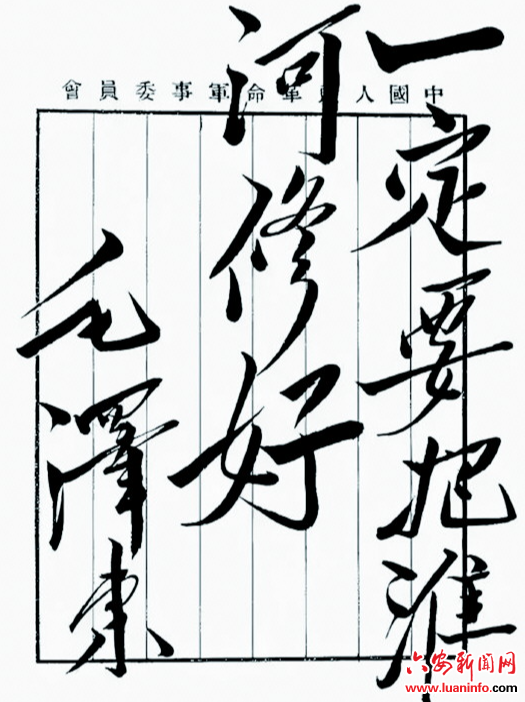 中國人民革命軍事委員會
一定要把淮
河修好
毛澤東
六安新闻网
www.luaninfo.com